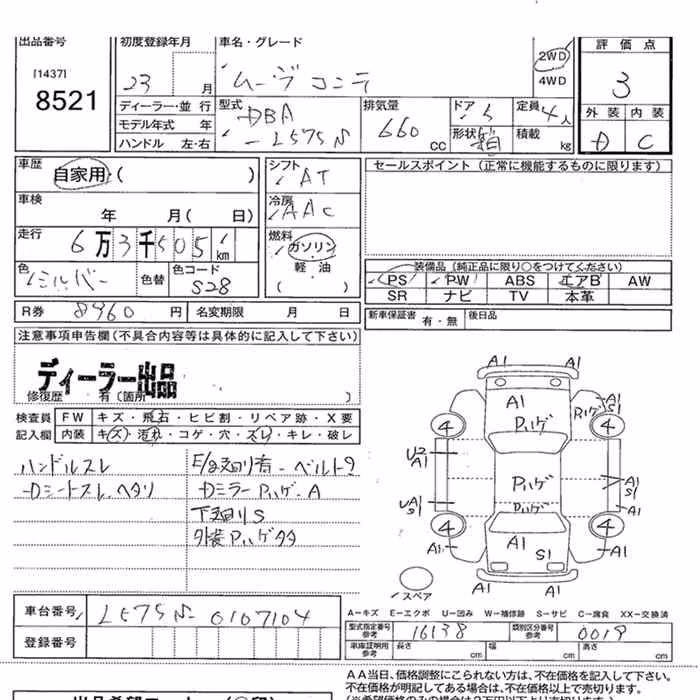 出品番号 初度登録年月 車名・グレード 評価点
[1437]
8521
23 月 ムーブコンテ 2WD 4WD 3
ディーラー・並行 型式 排気量 ドア 5 定員 4人 外装 内装
モデル年式 年 DBA
ハンドル 左・右 -L575S 660 cc 形状 箱 積載 kg D C
車歴 自家用・( ) シフト AT セールスポイント(正常に機能するものに限ります)
車検 年 月( 日) 冷房 AAC
走行 6万3千505km 燃料 ガソリン 軽油 ( )
色 シルバー 色替 色コード S28
装備品(純正品に限り○をつけてください)
PS PW ABS エアB AW
SR ナビ TV 本革
R券 8960 円 名変期限 月 日 新車保証書 有・無 後日品
注意事項申告欄(不具合内容等は具体的に記入して下さい)
ディーラー出品
修復歴 有(箇所 )
検査員 記入欄
FW キズ・飛石・ヒビ割・リペア跡・X要
内装 キズ・汚れ・コゲ・穴・スレ・キレ・破レ
ハンドルスレ E/g廻り音・ベルト?
Dシートスレ、ヘタリ Dミラー Pハゲ・A
下廻りS
外装Pハゲタタ
A1
A1
A1 Pハゲ PハゲA1S1
4 4
U2 A1
Pハゲ A1 S1
UA1 S1 Pハゲ
4 4
A1 A1 S1 A1
A1
スペア
車台番号 L575S-0107104
登録番号
A−キズ E−エクボ U−凹み W−補修跡 S−サビ C−腐食 XX−交換済
型式指定番号 参考 16138 類別区分番号 参考 0019
車庫証明用 参考 長さ cm 幅 cm 高さ cm
AA当日、価格調整にこられない方は、不在価格を記入して下さい。
不在価格が明記してある場合は、不在価格以上で売切ります。